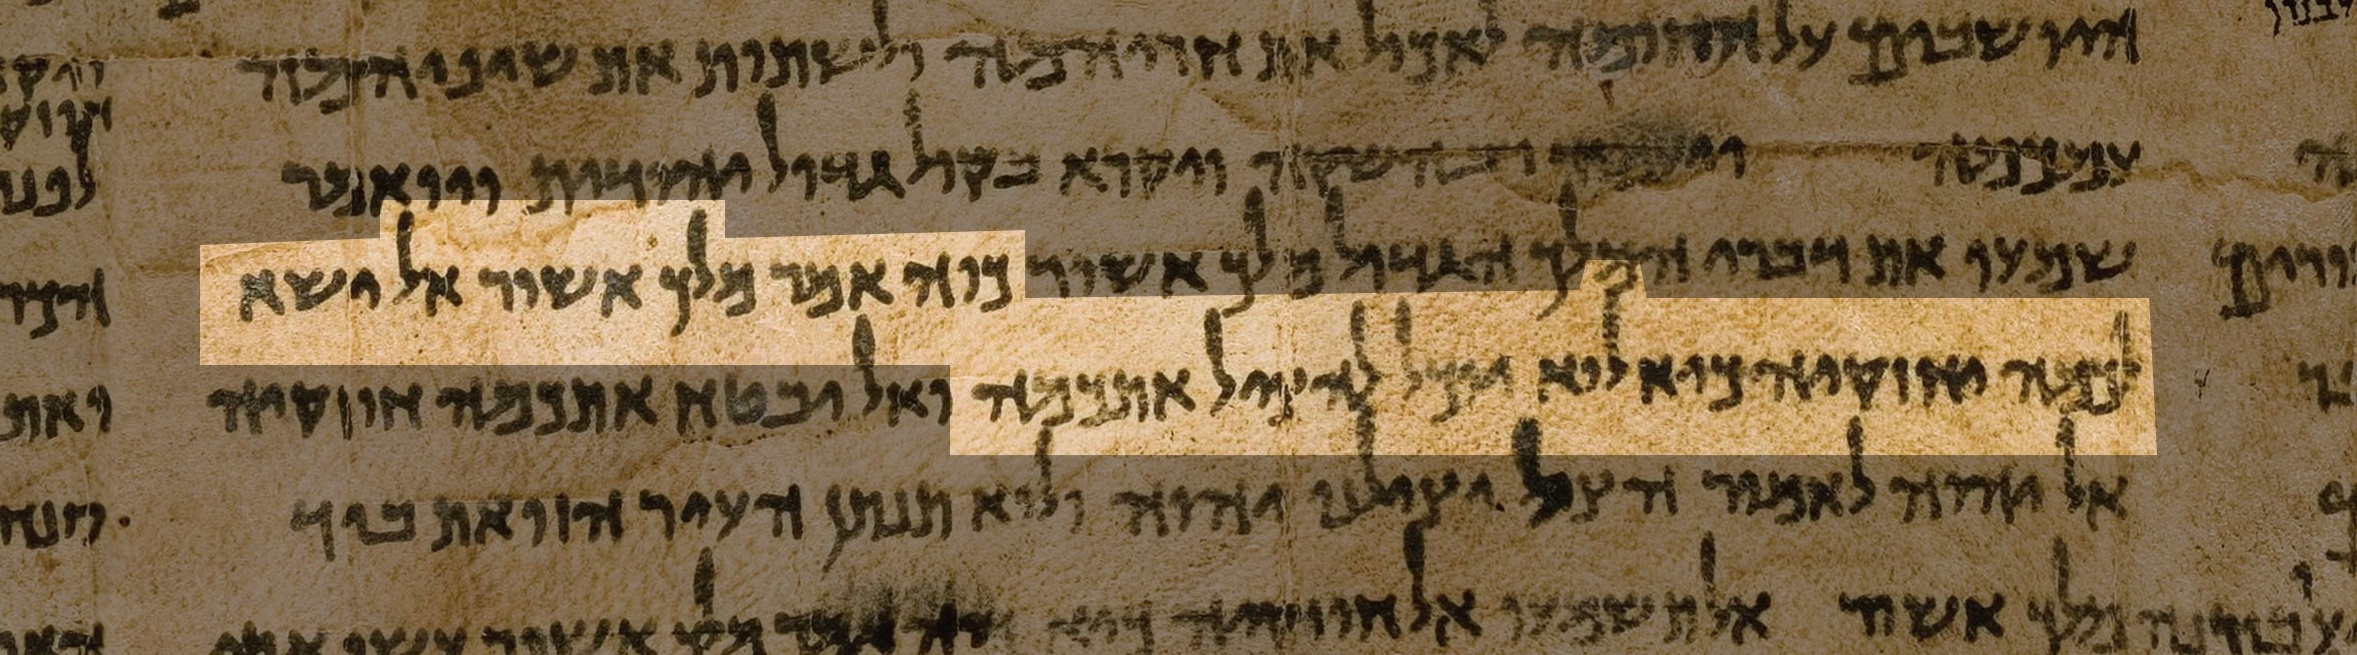 היושבים על החומה לאכול את חריהמה ולשתות את שיניהמה
עמכמה ויעמוד רבשקה ויקרא בקול גדול יהודית ויואמר
שמעו את דברי המלך הגדול מלך אשור כוה אמר מלך אשור אל ישא
לכמה יחזקיה כיא לוא יוכל להציל אתכמה ואל יבטח אתכמה חזקיה
אל יהוה לאמור הצל יצילנו יהוה ולוא תנתן העיר הזואת ביד
מלך אשור אל תשמעו אל חזקיה כיא כוה אמר מלך אשור עשו אתי